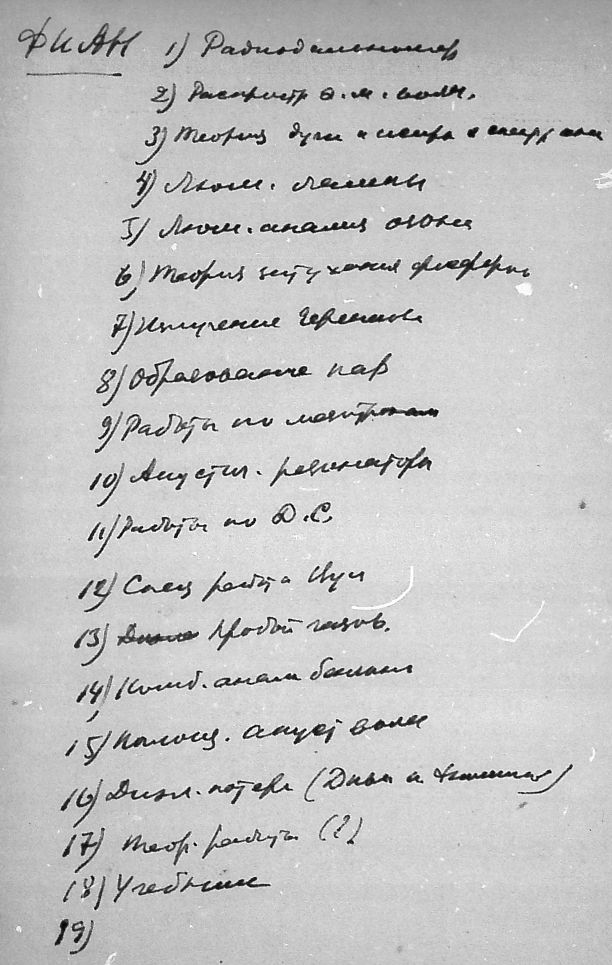 ФИАН 1) Радиодальномер
2) Распростр э.м. волн.
3) Теория дуги и искры и
4) Люм. лампы
5) Люм. анализ озона
6) Теория затухания
7) Излучение Черенкова
8) Образование пар
9) Работы по мезотронам
10) Акустич. резонаторы
11) Работы по Д.С.
12) Спец работа
13) Пробой газов.
14) Комб. анализ бензина
15) Поглощ. акуст волн
16) Диэл. потери (
17) Теор. работы (?)
18) Учебники
19)